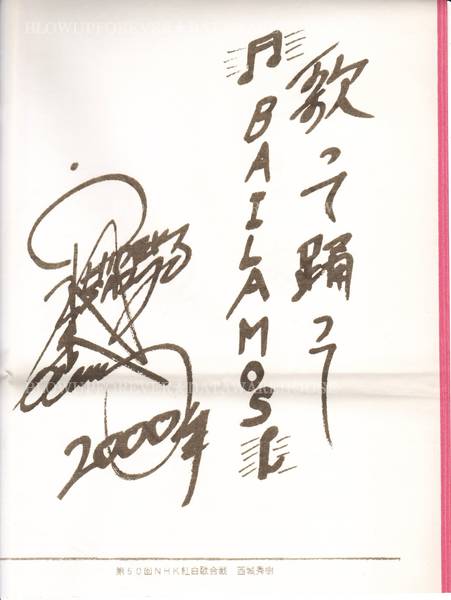 歌って踊って
♬BAILAMOS♪
2000年
第50回NHK紅白歌合戦 西城秀樹
BLOWUPFOREVER★DATAWAREHOUSE
BLOWUPFOREVER★DATAWAREHOUSE